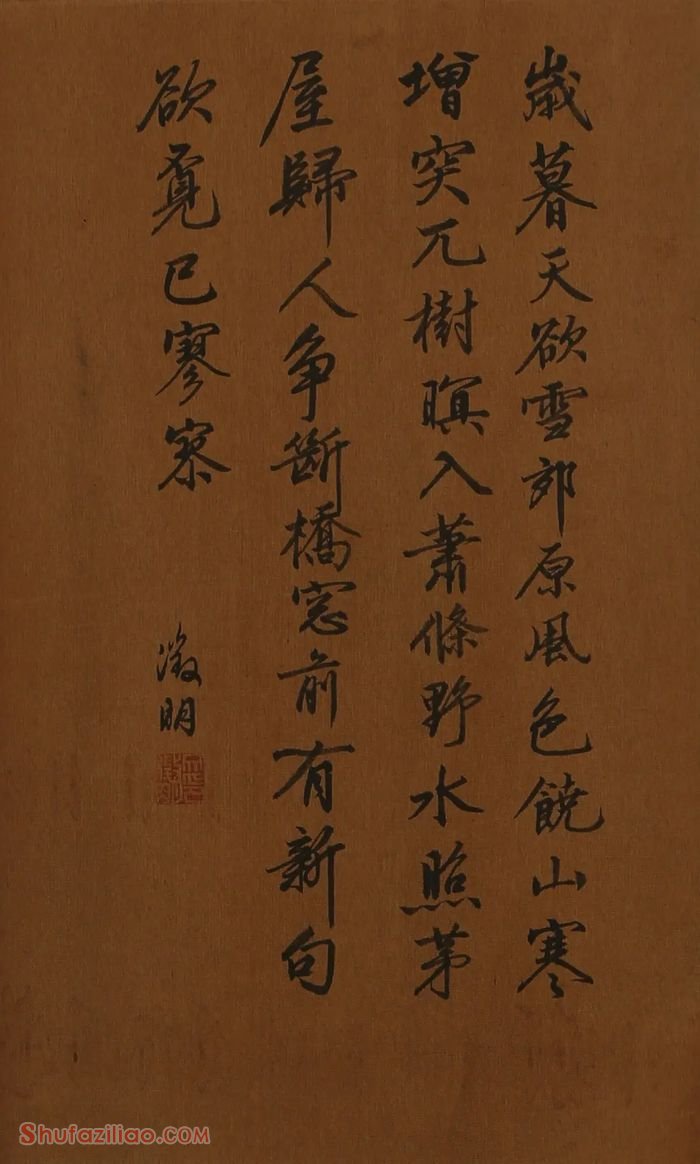 歲暮天欲雪郊原風色饒山寒
增突兀樹暝入蕭條野水照茅
屋歸人爭斷橋窓前有新句
欲覓已寥寥
徵明
Shufaziliao.com